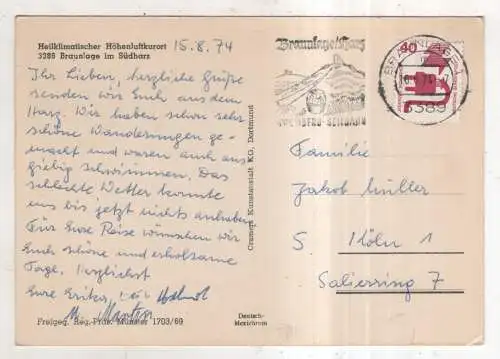 Heilklimatischer Höhenluftkurort
3389 Braunlage im Südharz
15.8.74
Ihr Lieben, herzliche Grüße
senden wir Euch aus dem
Harz. Wir haben schon sehr
schöne Wanderungen ge-
macht und waren auch aus-
giebig schwimmen. Das
schlechte Wetter konnte
uns bis jetzt nichts anhaben.
Für Eure Reise wünschen wir
Euch schöne und erholsame
Tage. Herzlichst
Eure Erika,
Freigeg. Reg.-Präs. Münster 1703/69
Cramers Kunstanstalt KG, Dortmund
Deutsch-
Braunlage/Harz
WURMBERG-SEILBAHN
BRAUNLAGE 1
3389
40
Familie
Jakob Müller
5 Köln 1
Salierring 7